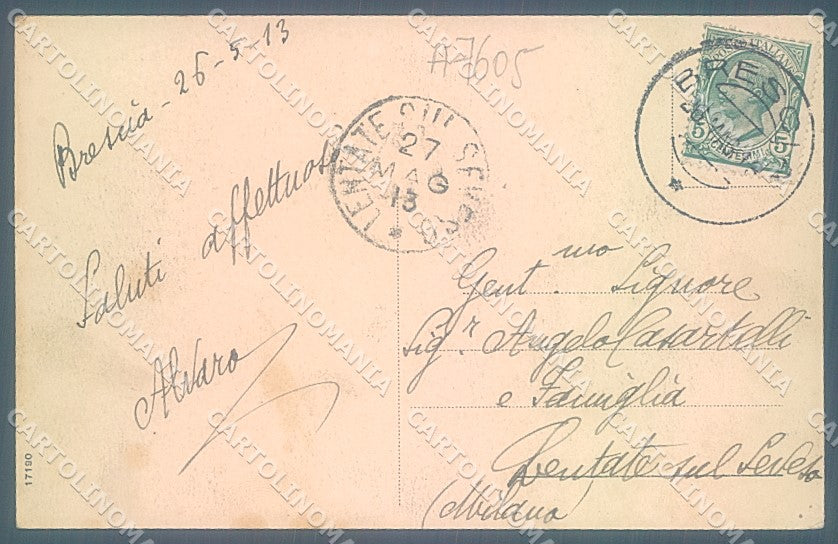 Brescia - 26-5-13
A7605
Saluti affettuosi
Alvaro
LENTATE SUL SEVESO
27
MAG
13
BRESCIA
Gent.mo Signore
Sig.r Angelo Casartelli
e Famiglia
Lentate sul Seveso
(Milano)
17190
CARTOLINOMANIA